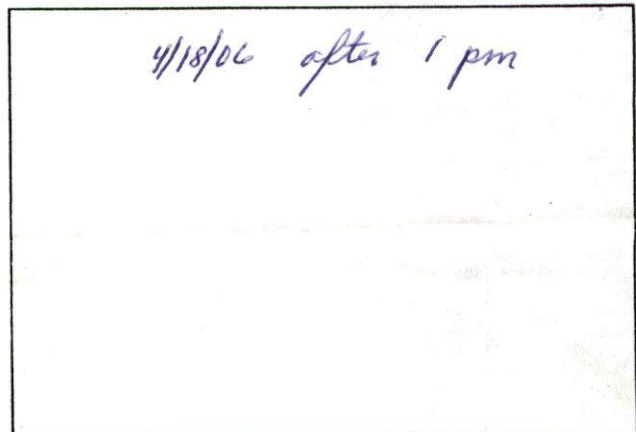 4/18/06 after 1 pm